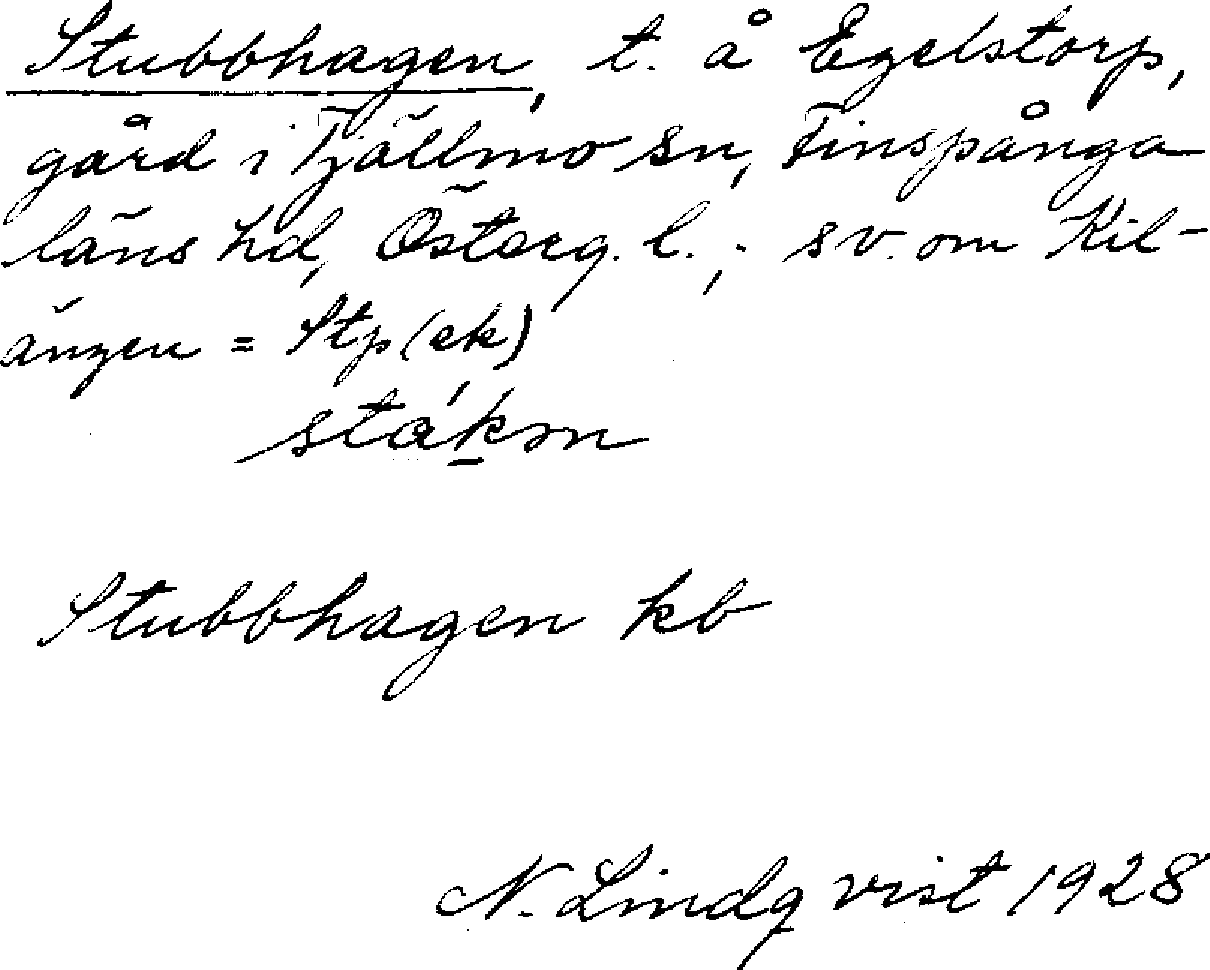 Stubbhagen, t. å Egelstorp,
gård i Tjällmo sn, Finspånga
läns hd, Österg. l.; sv. om Kil-
ängen = Stp (ek)
Stubbhagen kb
N. Lindqvist 1928